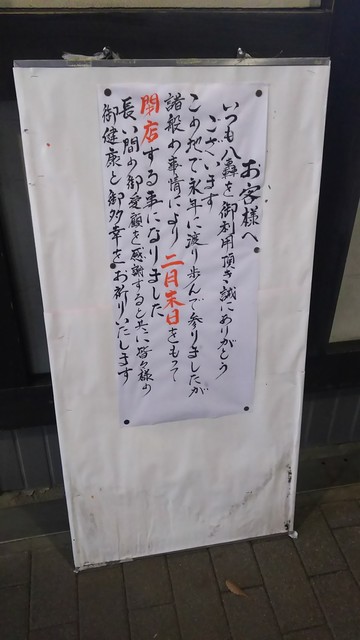 お客様へ
いつも八轟を御利用頂き誠にありがとう
ございます
この地で永年に渡り歩んで参りましたが
諸般の事情により二月末日をもって
閉店する事になりました
長い間の御愛顧を感謝すると共に皆々様の
御健康と御多幸をお祈りいたします